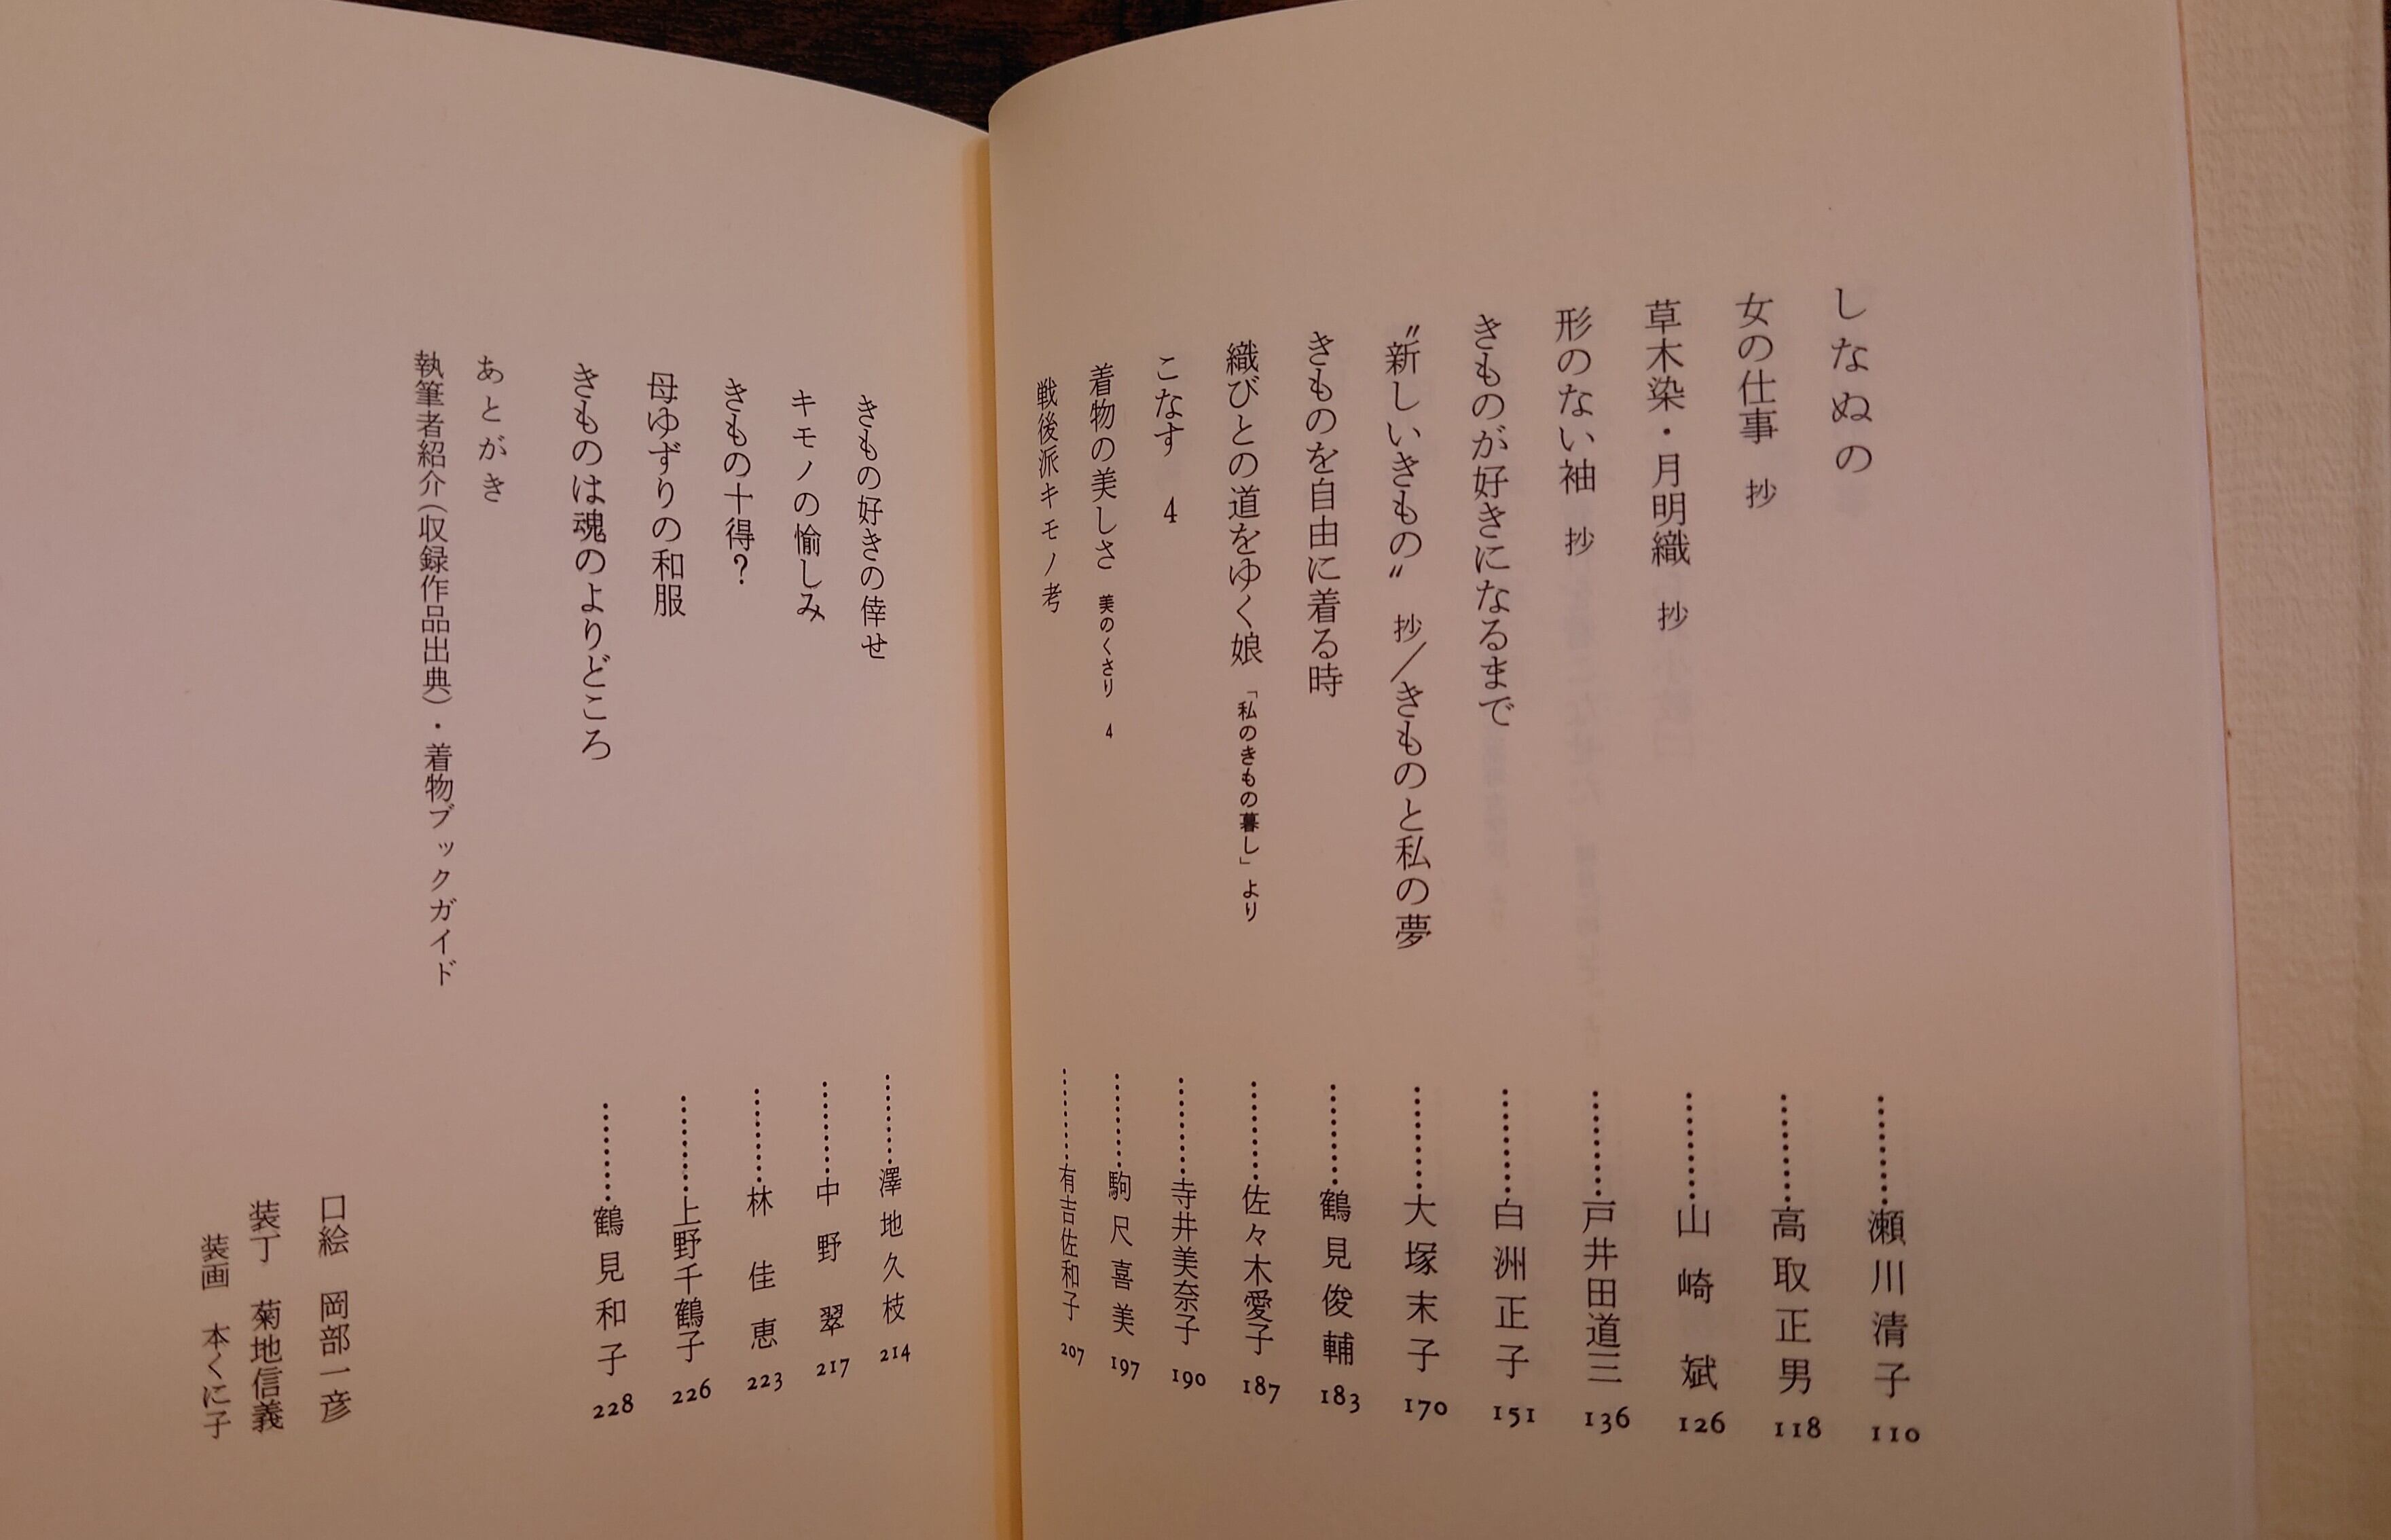 しなぬの ………瀬川清子 110
女の仕事 抄 ………高取正男 118
草木染・月明織 抄 ………山崎斌 126
形のない袖 抄 ………戸井田道三 136
きものが好きになるまで ………白洲正子 151
〝新しいきもの〟 抄／きものと私の夢 ………大塚末子 170
きものを自由に着る時 ………鶴見俊輔 183
織びとの道をゆく娘 「私のきもの暮し」より ………佐々木愛子 187
こなす 4 ………寺井美奈子 190
着物の美しさ 美のくさり 4 ………駒尺喜美 197
戦後派キモノ考 ………有吉佐和子 207
きもの好きの倖せ ………澤地久枝 214
キモノの愉しみ ………中野翠 217
きもの十得? ………林佳恵 223
母ゆずりの和服 ………上野千鶴子 226
きものは魂のよりどころ ………鶴見和子 228
あとがき
執筆者紹介（収録作品出典）・着物ブックガイド
口絵 岡部一彦
装丁 菊地信義
装画 本くに子